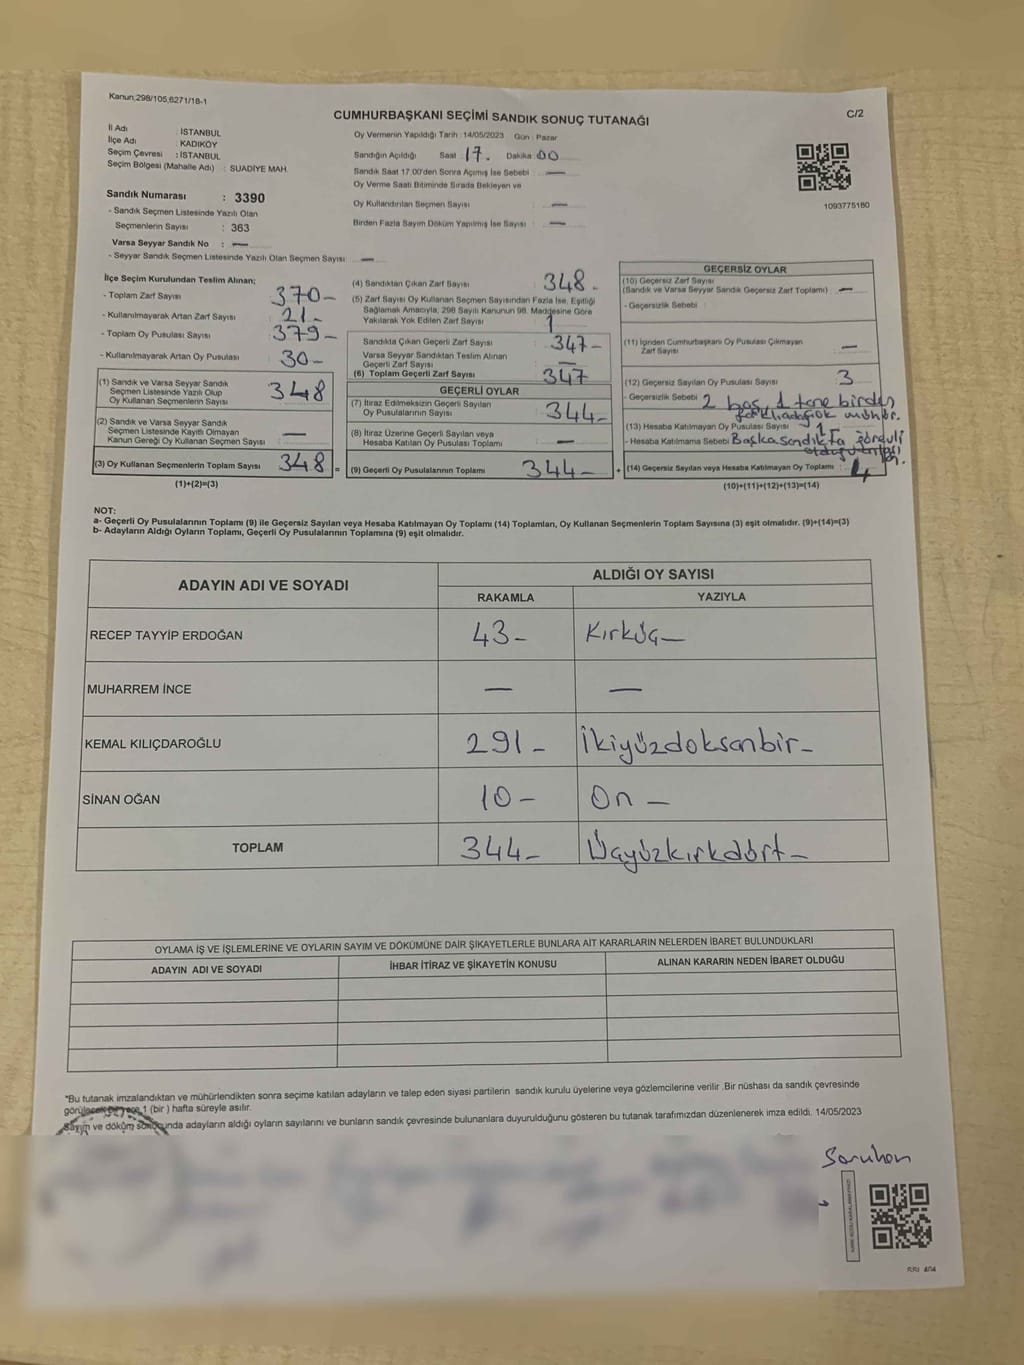 Kanun,298/105,6271/18-1
CUMHURBAŞKANI SEÇİMİ SANDIK SONUÇ TUTANAĞI
C/2
İl Adı : İSTANBUL
İlçe Adı : KADIKÖY
Seçim Çevresi : İSTANBUL
Seçim Bölgesi (Mahalle Adı) : SUADİYE MAH.
Oy Vermenin Yapıldığı Tarih : 14/05/2023 Gün : Pazar
Sandığın Açıldığı Saat 17. Dakika 00
Sandık Saat 17.00'den Sonra Açımış İse Sebebi : —
Oy Verme Saati Bitiminde Sırada Bekleyen ve
Oy Kullandırılan Seçmen Sayısı : —
Birden Fazla Sayım Döküm Yapılmış İse Sayısı : —
1093775180
Sandık Numarası : 3390
- Sandık Seçmen Listesinde Yazılı Olan
Seçmenlerin Sayısı : 363
Varsa Seyyar Sandık No : —
- Seyyar Sandık Seçmen Listesinde Yazılı Olan Seçmen Sayısı : —
İlçe Seçim Kurulundan Teslim Alınan;
- Toplam Zarf Sayısı 370-
- Kullanılmayarak Artan Zarf Sayısı 21-
- Toplam Oy Pusulası Sayısı 379-
- Kullanılmayarak Artan Oy Pusulası 30-
(1) Sandık ve Varsa Seyyar Sandık
Seçmen Listesinde Yazılı Olup
Oy Kullanan Seçmenlerin Sayısı 348
(2) Sandık ve Varsa Seyyar Sandık
Seçmen Listesinde Kayıtlı Olmayan
Kanun Gereği Oy Kullanan Seçmen Sayısı —
(3) Oy Kullanan Seçmenlerin Toplam Sayısı 348
(1)+(2)=(3)
(4) Sandıktan Çıkan Zarf Sayısı 348-
(5) Zarf Sayısı Oy Kullanan Seçmen Sayısından Fazla İse, Eşitliği
Sağlamak Amacıyla, 298 Sayılı Kanunun 98. Maddesine Göre
Yakılarak Yok Edilen Zarf Sayısı 1
Sandıkta Çıkan Geçerli Zarf Sayısı 347-
Varsa Seyyar Sandıktan Teslim Alınan
Geçerli Zarf Sayısı —
(6) Toplam Geçerli Zarf Sayısı 347
GEÇERLİ OYLAR
(7) İtiraz Edilmeksizin Geçerli Sayılan
Oy Pusulalarının Sayısı 344-
(8) İtiraz Üzerine Geçerli Sayılan veya
Hesaba Katılan Oy Pusulası Toplamı —
(9) Geçerli Oy Pusulalarının Toplamı 344-
GEÇERSİZ OYLAR
(10) Geçersiz Zarf Sayısı
(Sandık ve Varsa Seyyar Sandık Geçersiz Zarf Toplamı) —
- Geçersizlik Sebebi :
(11) İçinden Cumhurbaşkanı Oy Pusulası Çıkmayan
Zarf Sayısı —
(12) Geçersiz Sayılan Oy Pusulası Sayısı : 3
- Geçersizlik Sebebi 2 boş, 1 tane birden
mühür.
(13) Hesaba Katılmayan Oy Pusulası Sayısı : 1
- Hesaba Katılmama Sebebi Başka sandıkta görevli
(14) Geçersiz Sayılan veya Hesaba Katılmayan Oy Toplamı 4
(10)+(11)+(12)+(13)=(14)
NOT:
a- Geçerli Oy Pusulalarının Toplamı (9) ile Geçersiz Sayılan veya Hesaba Katılmayan Oy Toplamı (14) Toplamları, Oy Kullanan Seçmenlerin Toplam Sayısına (3) eşit olmalıdır. (9)+(14)=(3)
b- Adayların Aldığı Oyların Toplamı, Geçerli Oy Pusulalarının Toplamına (9) eşit olmalıdır.
ADAYIN ADI VE SOYADI
ALDIĞI OY SAYISI
RAKAMLA YAZIYLA
RECEP TAYYİP ERDOĞAN 43- Kırküç—
MUHARREM İNCE — —
KEMAL KILIÇDAROĞLU 291- İkiyüzdoksanbir-
SİNAN OĞAN 10- On —
TOPLAM 344- Üçyüzkırkdört-
OYLAMA İŞ VE İŞLEMLERİNE VE OYLARIN SAYIM VE DÖKÜMÜNE DAİR ŞİKAYETLERLE BUNLARA AİT KARARLARIN NELERDEN İBARET BULUNDUKLARI
ADAYIN ADI VE SOYADI İHBAR İTİRAZ VE ŞİKAYETİN KONUSU ALINAN KARARIN NEDEN İBARET OLDUĞU
*Bu tutanak imzalandıktan ve mühürlendikten sonra seçime katılan adayların ve talep eden siyasi partilerin sandık kurulu üyelerine veya gözlemcilerine verilir .Bir nüshası da sandık çevresinde
1 (bir ) hafta süreyle asılır.
Sayım ve döküm sonucunda adayların aldığı oyların sayılarını ve bunların sandık çevresinde bulunanlara duyurulduğunu gösteren bu tutanak tarafımızdan düzenlenerek imza edildi. 14/05/2023
Saruhan